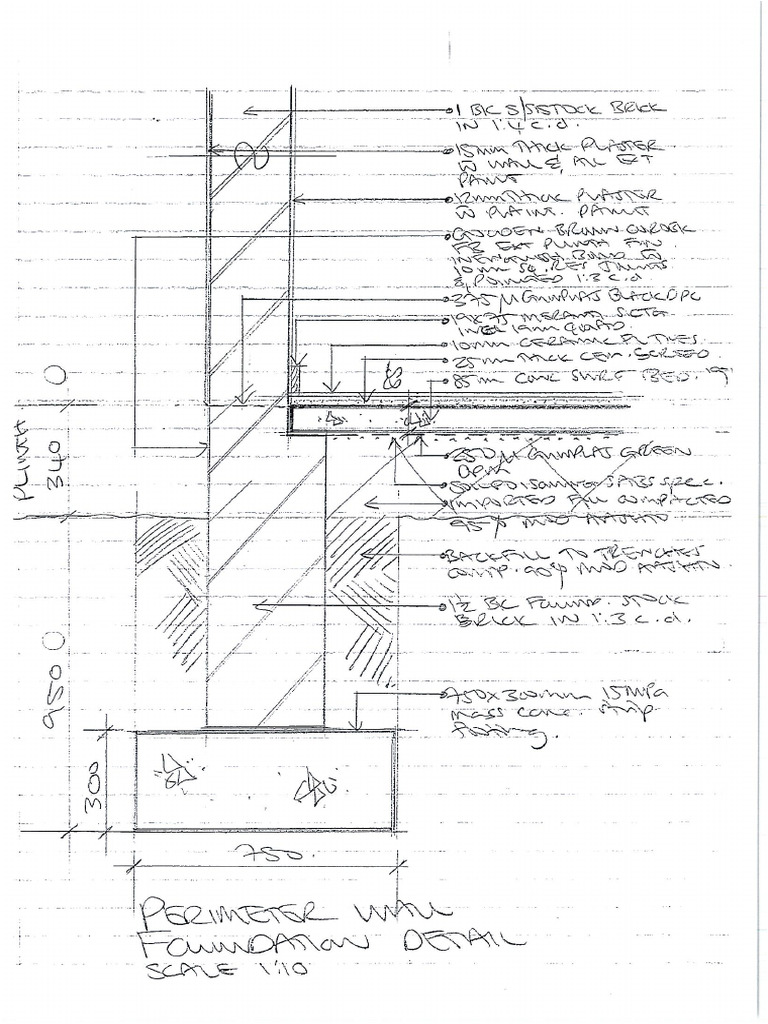 1 BK S/S STOCK BRICK
IN 1:4 c.d.
15mm THICK PLASTER
W WALL & ALL EXT
PAINT
12mm THICK PLASTER
W PLAINT. PAINT
GOLDEN BROWN
FB EXT PLINTH FIN
BOND
10mm SQ. RES JOINTS
& POINTED 1:3 c.d
375 µ GUNPLAS BLACK DPC
19x75 MERANTI SKTG
INCL 19mm QUAD
10mm CERAMIC FL TILES.
25mm THICK CEM. SCREED
85m CONC SURF BED.
0
PLINTH
340
250 µ GUNPLAS GREEN
DPM
SOIL POISONING SABS SPEC.
IMPORTED FILL COMPACTED
95% MOD AASHTO
BACKFILL TO TRENCHES
COMP. 90% MOD AASHTO.
1½ BK FOUND. STOCK
BRICK IN 1:3 c.d.
950
750x300mm 15mpa
mass conc. strip
footing.
300
750.
PERIMETER WALL
FOUNDATION DETAIL
SCALE 1:10